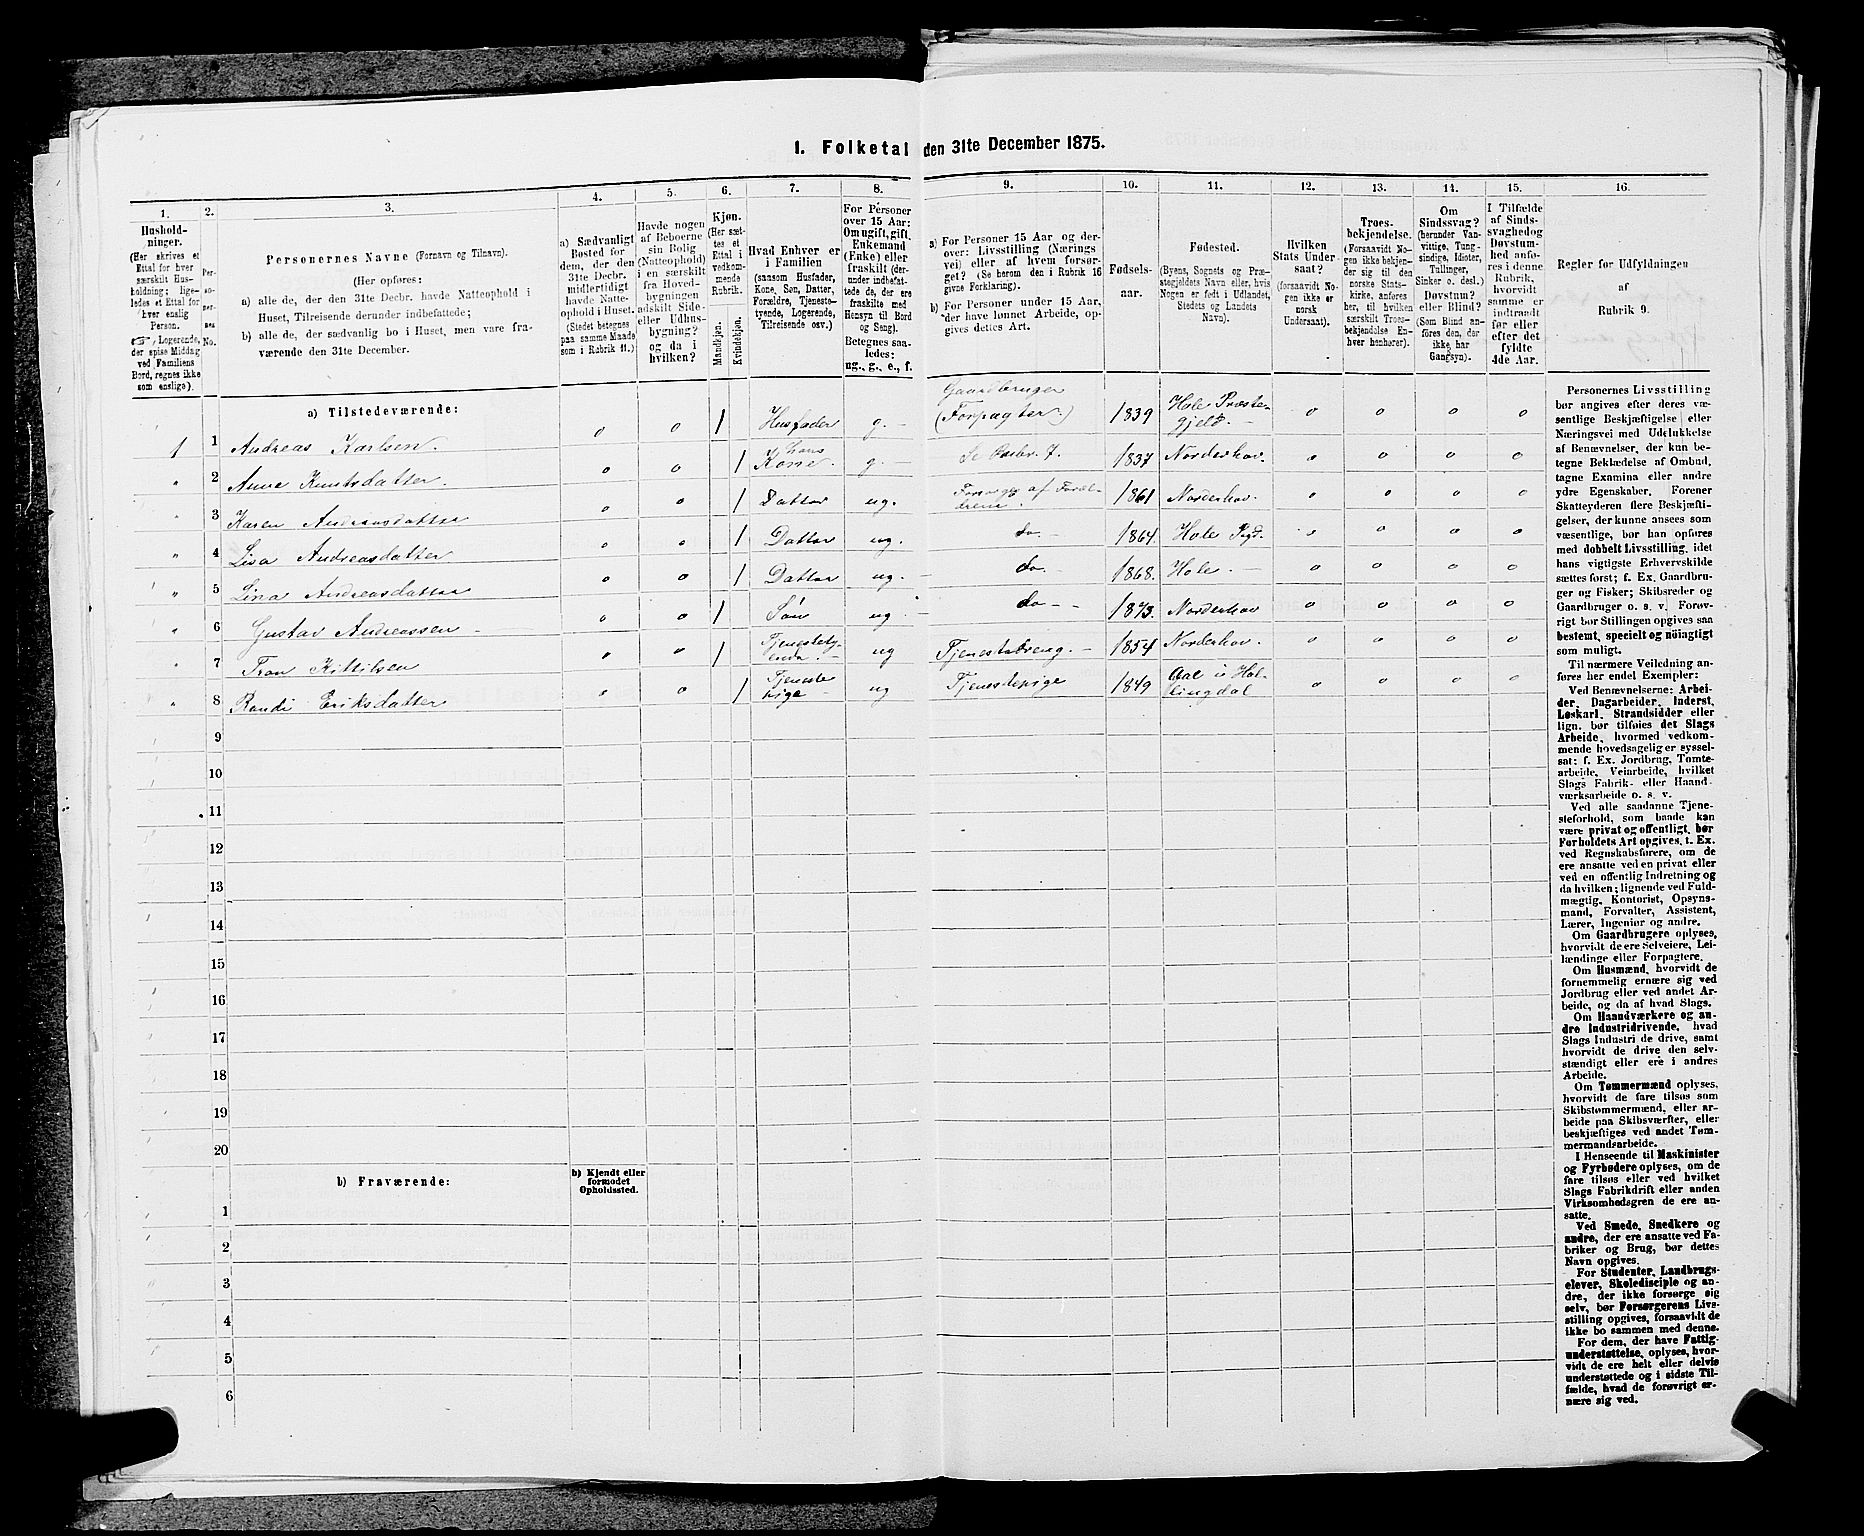 1. Folketal den 31te December 1875.
1.
2.
3.
4.
5.
6.
7.
8.
9.
10.
11.
12.
13.
14.
15.
16.
Hushold-
ninger.
(Her skrives et
Ettal for hver
særskilt Hus-
holdning; lige-
ledes et Ettal for
hver enslig
Person.
☞ Logerende,
der spise Middag
ved Familiens
Bord, regnes ikke
som enslige).
Per-
so-
ner-
nes
No.
Personernes Navne (Fornavn og Tilnavn).
(Her opføres:
a) alle de, der den 31te Decbr. havde Natteophold i
Huset, Tilreisende derunder indbefattede;
b) alle de, der sædvanlig bo i Huset, men vare fra-
værende den 31te December.
a) Sædvanligt
Bosted for
dem, der den
31te Decbr.
midlertidigt
havde Natte-
ophold i Huset.
(Stedet betegnes
paa samme Maade
som i Rubrik 11.)
Havde nogen
af Beboerne
sin Bolig
(Natteophold)
i en særskilt
fra Hoved-
bygningen
adskilt Side-
eller Udhus-
bygning?
og da i
hvilken?
Kjøn.
(Her sæt-
tes et
Ettal i
vedkom-
mende
Rubrik.
Mandkjøn.
Kvindekjøn.
Hvad Enhver er
i Familien
(saasom Husfader,
Kone, Søn, Datter,
Forældre, Tjeneste-
tyende, Logerende,
Tilreisende osv.)
For Personer
over 15 Aar:
Om ugift, gift,
Enkemand
(Enke) eller
fraskilt (der-
under indbefatte-
de de, der ere
fraskilte med
Hensyn til Bord
og Seng).
Betegnes saa-
ledes:
ug., g., e., f.
a) For Personer 15 Aar og der-
over: Livsstilling (Nærings-
vei) eller af hvem forsør-
get? (Se herom den i Rubrik 16
givne Forklaring).
b) For Personer under 15 Aar,
der have lønnet Arbeide, op-
gives dettes Art.
Fødsels-
aar.
Fødested.
(Byens, Sognets og Præ-
stegjeldets Navn eller, hvis
Nogen er født i Udlandet,
Stedets og Landets
Navn).
Hvilken
Stats Under-
saat?
(forsaavidt No-
gen ikke er
norsk
Undersaat).
Troes-
bekjendelse.
(Forsaavidt No-
gen ikke bekjen-
der sig til den
norske Stats-
kirke, anføres
her, til hvilken
særskilt Troes-
bekjendelse En-
hver henhører).
Om
Sindssvag?
(herunder Van-
vittige, Tung-
sindige, Idioter,
Tullinger,
Sinker o. desl.)
Døvstum?
eller Blind?
(Som Blind an-
føres den, der
ikke har
Gangsyn).
I Tilfælde
af Sinds-
svaghed og
Døvstum-
hed anfø-
res i denne
Rubrik,
hvorvidt
samme er
indtraadt
før eller
efter det
fyldte
4de Aar.
Regler for Udfyldningen
af
Rubrik 9.
a) Tilstedeværende:
1 1 Andreas Karlsen. o o 1 Husfader g. — Gaardbruger (Forpagter.) 1839 Hole Præste-gjeld. — o o o o
" 2 Anne Knutsdatter. o o 1 hans Kone. g. — 1837 Norderhov. o o o o
" 3 Karen Andreasdatter o o 1 Datter ug. Forsørges af Foræl-drene. 1861 Norderhov. o o o o
" 4 Lisa Andreasdatter o o 1 Datter ug. do. — 1864. Hole Pgd. o o o o
" 5 Lina Andreasdatter o o 1 Datter ug. — do. — 1868. Hole. — o o o o
" 6 Gustav Andreassen — o o 1 Søn ug. — do — 1873. Norderhov o o o o
" 7 Tron Kittilsen o o 1 Tjenestety-ende. — ug Tjenestedreng. — 1854 Norderhov. o o o o
" 8 Randi Eriksdatter o o 1 Tjeneste pige — ug Tjenestepige 1849 Aal i Hal-lingdal o o o o
9
10
11
12
13
14
15
16
17
18
19
20
b) Fraværende:
b) Kjendt eller
formodet
Opholdssted.
1
2
3
4
5
6
Personernes Livsstilling
bør angives efter deres væ-
sentlige Beskjæftigelse eller
Næringsvei med Udelukkelse
af Benævnelser, der kun be-
tegne Beklædelse af Ombud,
tagne Examina eller andre
ydre Egenskaber. Forener
Skatteyderen flere Beskjæfti-
gelser, der kunne ansees som
væsentlige, bør han opføres
med dobbelt Livsstilling, idet
hans vigtigste Erhvervskilde
sættes først; f. Ex. Gaardbru-
ger og Fisker; Skibsreder og
Gaardbruger o. s. v. Forøv-
rigt bør Stillingen opgives saa
bestemt, specielt og nöiagtigt
som muligt.
Til nærmere Veiledning an-
føres her endel Exempler:
Ved Benævnelserne: Arbei-
der, Dagarbeider, Inderst,
Løskarl, Strandsidder eller
lign. bør tilføies det Slags
Arbeide, hvormed vedkom-
mende hovedsagelig er syssel-
sat; f. Ex. Jordbrug, Tomte-
arbeide, Veiarbeide, hvilket
Slags Fabrik- eller Haand-
værksarbeide o. s. v.
Ved alle saadanne Tjene-
steforhold, som baade kan
være privat og offentligt, bør
Forholdets Art opgives, t. Ex.
ved Regnskabsførere, om de
ere ansatte ved en privat eller
ved en offentlig Indretning og
da hvilken; lignende ved Fuld-
mægtig, Kontorist, Opsyns-
mand, Forvalter, Assistent,
Lærer, Ingeniør og andre.
Om Gaardbrugere oplyses,
hvorvidt de ere Selveiere, Lei-
lændinge eller Forpagtere.
Om Husmænd, hvorvidt de
fornemmelig ernære sig ved
Jordbrug eller ved andet Ar-
beide, og da af hvad Slags.
Om Haandværkere og an-
dre Industridrivende, hvad
Slags Industri de drive, samt
hvorvidt de drive den selv-
stændigt eller ere i andres
Arbeide.
Om Tømmermænd oplyses,
hvorvidt de fare tilsøs som
Skibstømmermænd, eller ar-
beide paa Skibsværfter, eller
beskjæftiges ved andet Tøm-
mermandsarbeide.
I Henseende til Maskinister
og Fyrbødere oplyses, om de
fare tilsøs eller ved hvilket
Slags Fabrikdrift eller anden
Virksomhedsgren de ere an-
satte.
Ved Smede, Snedkere og
andre, der ere ansatte ved Fa-
briker og Brug, bør dettes
Navn opgives.
For Studenter, Landbrugs-
elever, Skoledisciple og an-
dre, der ikke forsørge sig
selv, bør Forsørgerens Livs-
stilling opgives, forsaavidt de
ikke bo sammen med denne.
For dem, der have Fattig-
understøttelse, oplyses, hvor-
vidt de ere helt eller delvis
understøttede og i sidste Til-
fælde, hvad de forøvrigt er-
nære sig ved.